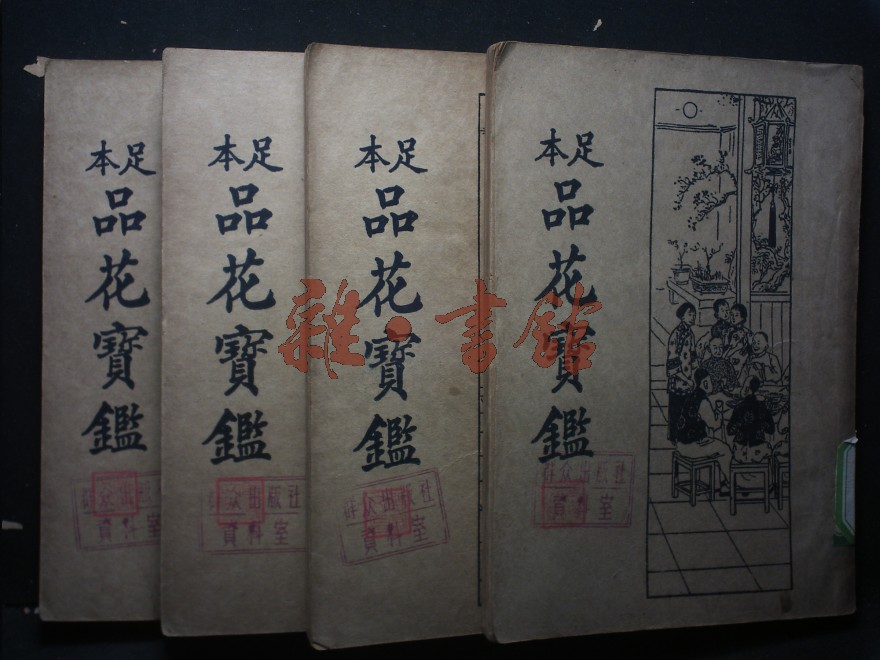 足本
品花寶鑑
群众出版社
資料室
足本
品花寶鑑
群众出版社
資料室
足本
品花寶鑑
群众出版社
資料室
足本
品花寶鑑
群众出版社
資料室
雜·書館